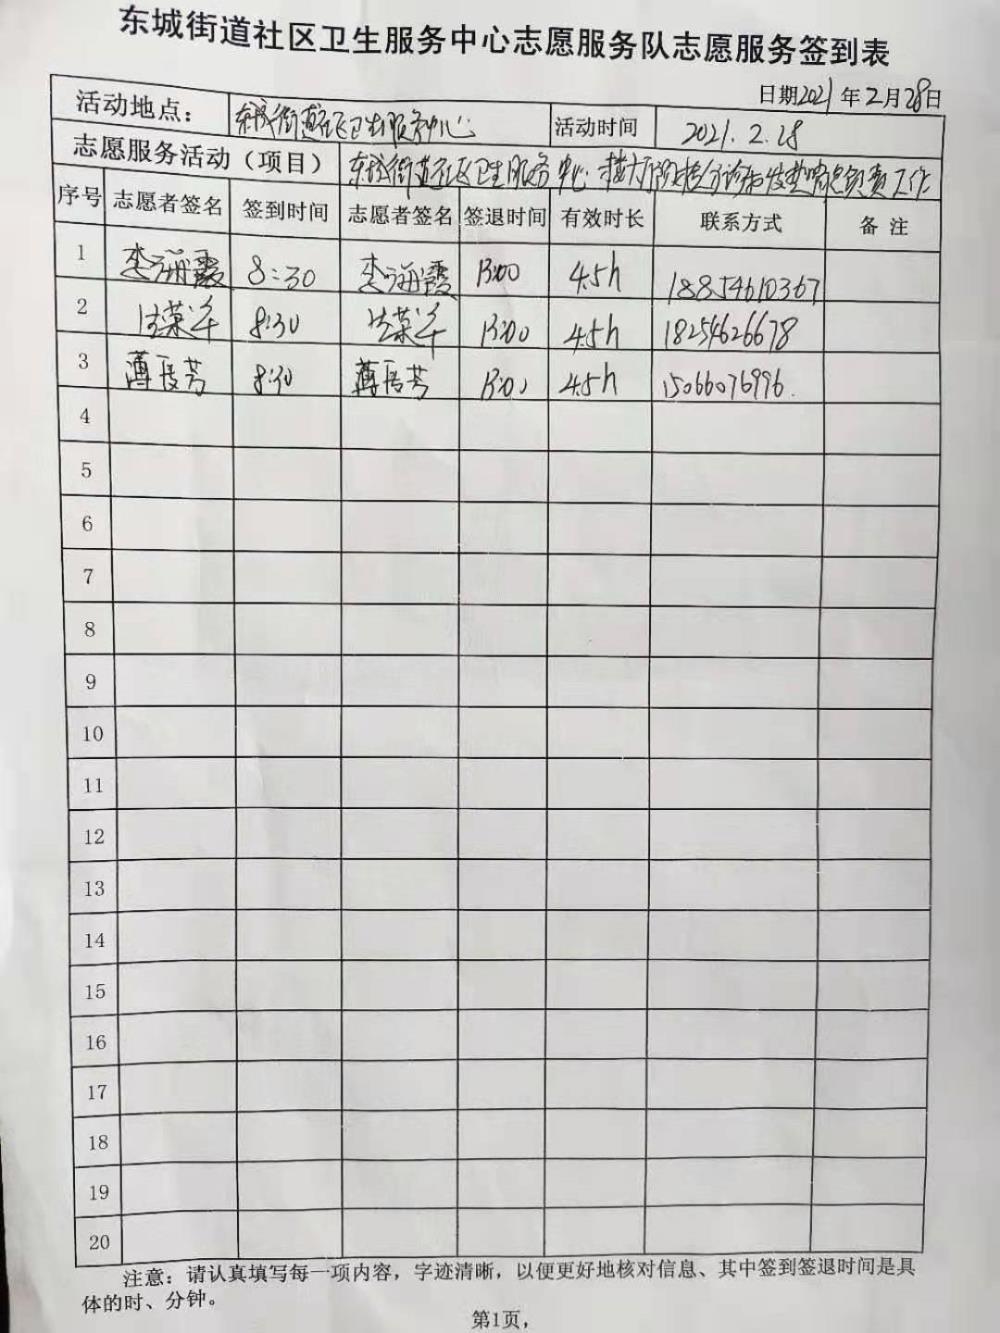 东城街道社区卫生服务中心志愿服务队志愿服务签到表
日期2021年2月28日
活动地点： 东城街道社区卫生服务中心 活动时间 2021.2.28
志愿服务活动（项目） 东城街道社区卫生服务中心 预检分诊和发热哨点负责工作
序号 志愿者签名 签到时间 志愿者签名 签退时间 有效时长 联系方式 备注
1 李海霞 8:30 李海霞 13:00 4.5h 18854610367
2 8:30 13:00 4.5h 18254626678
3 8:30 13:00 4.5h 15066076996.
4
5
6
7
8
9
10
11
12
13
14
15
16
17
18
19
20
注意：请认真填写每一项内容，字迹清晰，以便更好地核对信息、其中签到签退时间是具
体的时、分钟。
第1页，